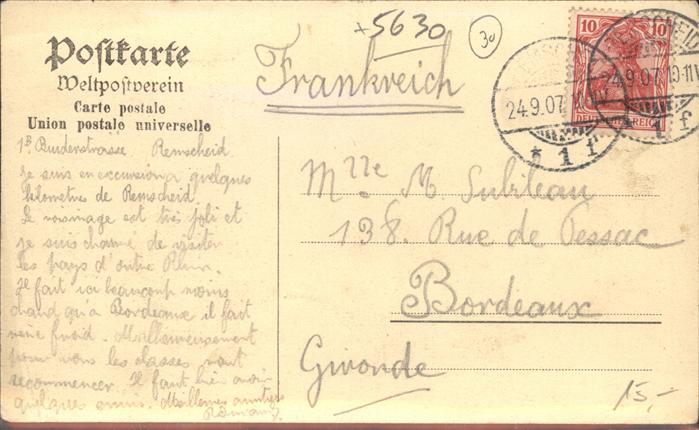 +5630
30
Postkarte
Weltpostverein
Carte postale
Union postale universelle
Frankreich
10 10
DEUTSCHES REICH
24.9.07
* 1 f
REMSCHEID
24.9.07. 10-11V
1 f
Remscheid.
Je suis en excursion a quelques
kilometres de Remscheid.
Le voisinage est très joli et
je suis charmé de visiter
les pays d'outre Rhin.
Il fait ici beaucoup moins
chaud qu'à Bordeaux il fait
même froid. Malheureusement
pour nous les classes vont
recommencer. Il faut bien avoir
quelques ennuis. Meilleures amitiés
Mlle M.
138. Rue de Pessac
Bordeaux
Gironde
15,-